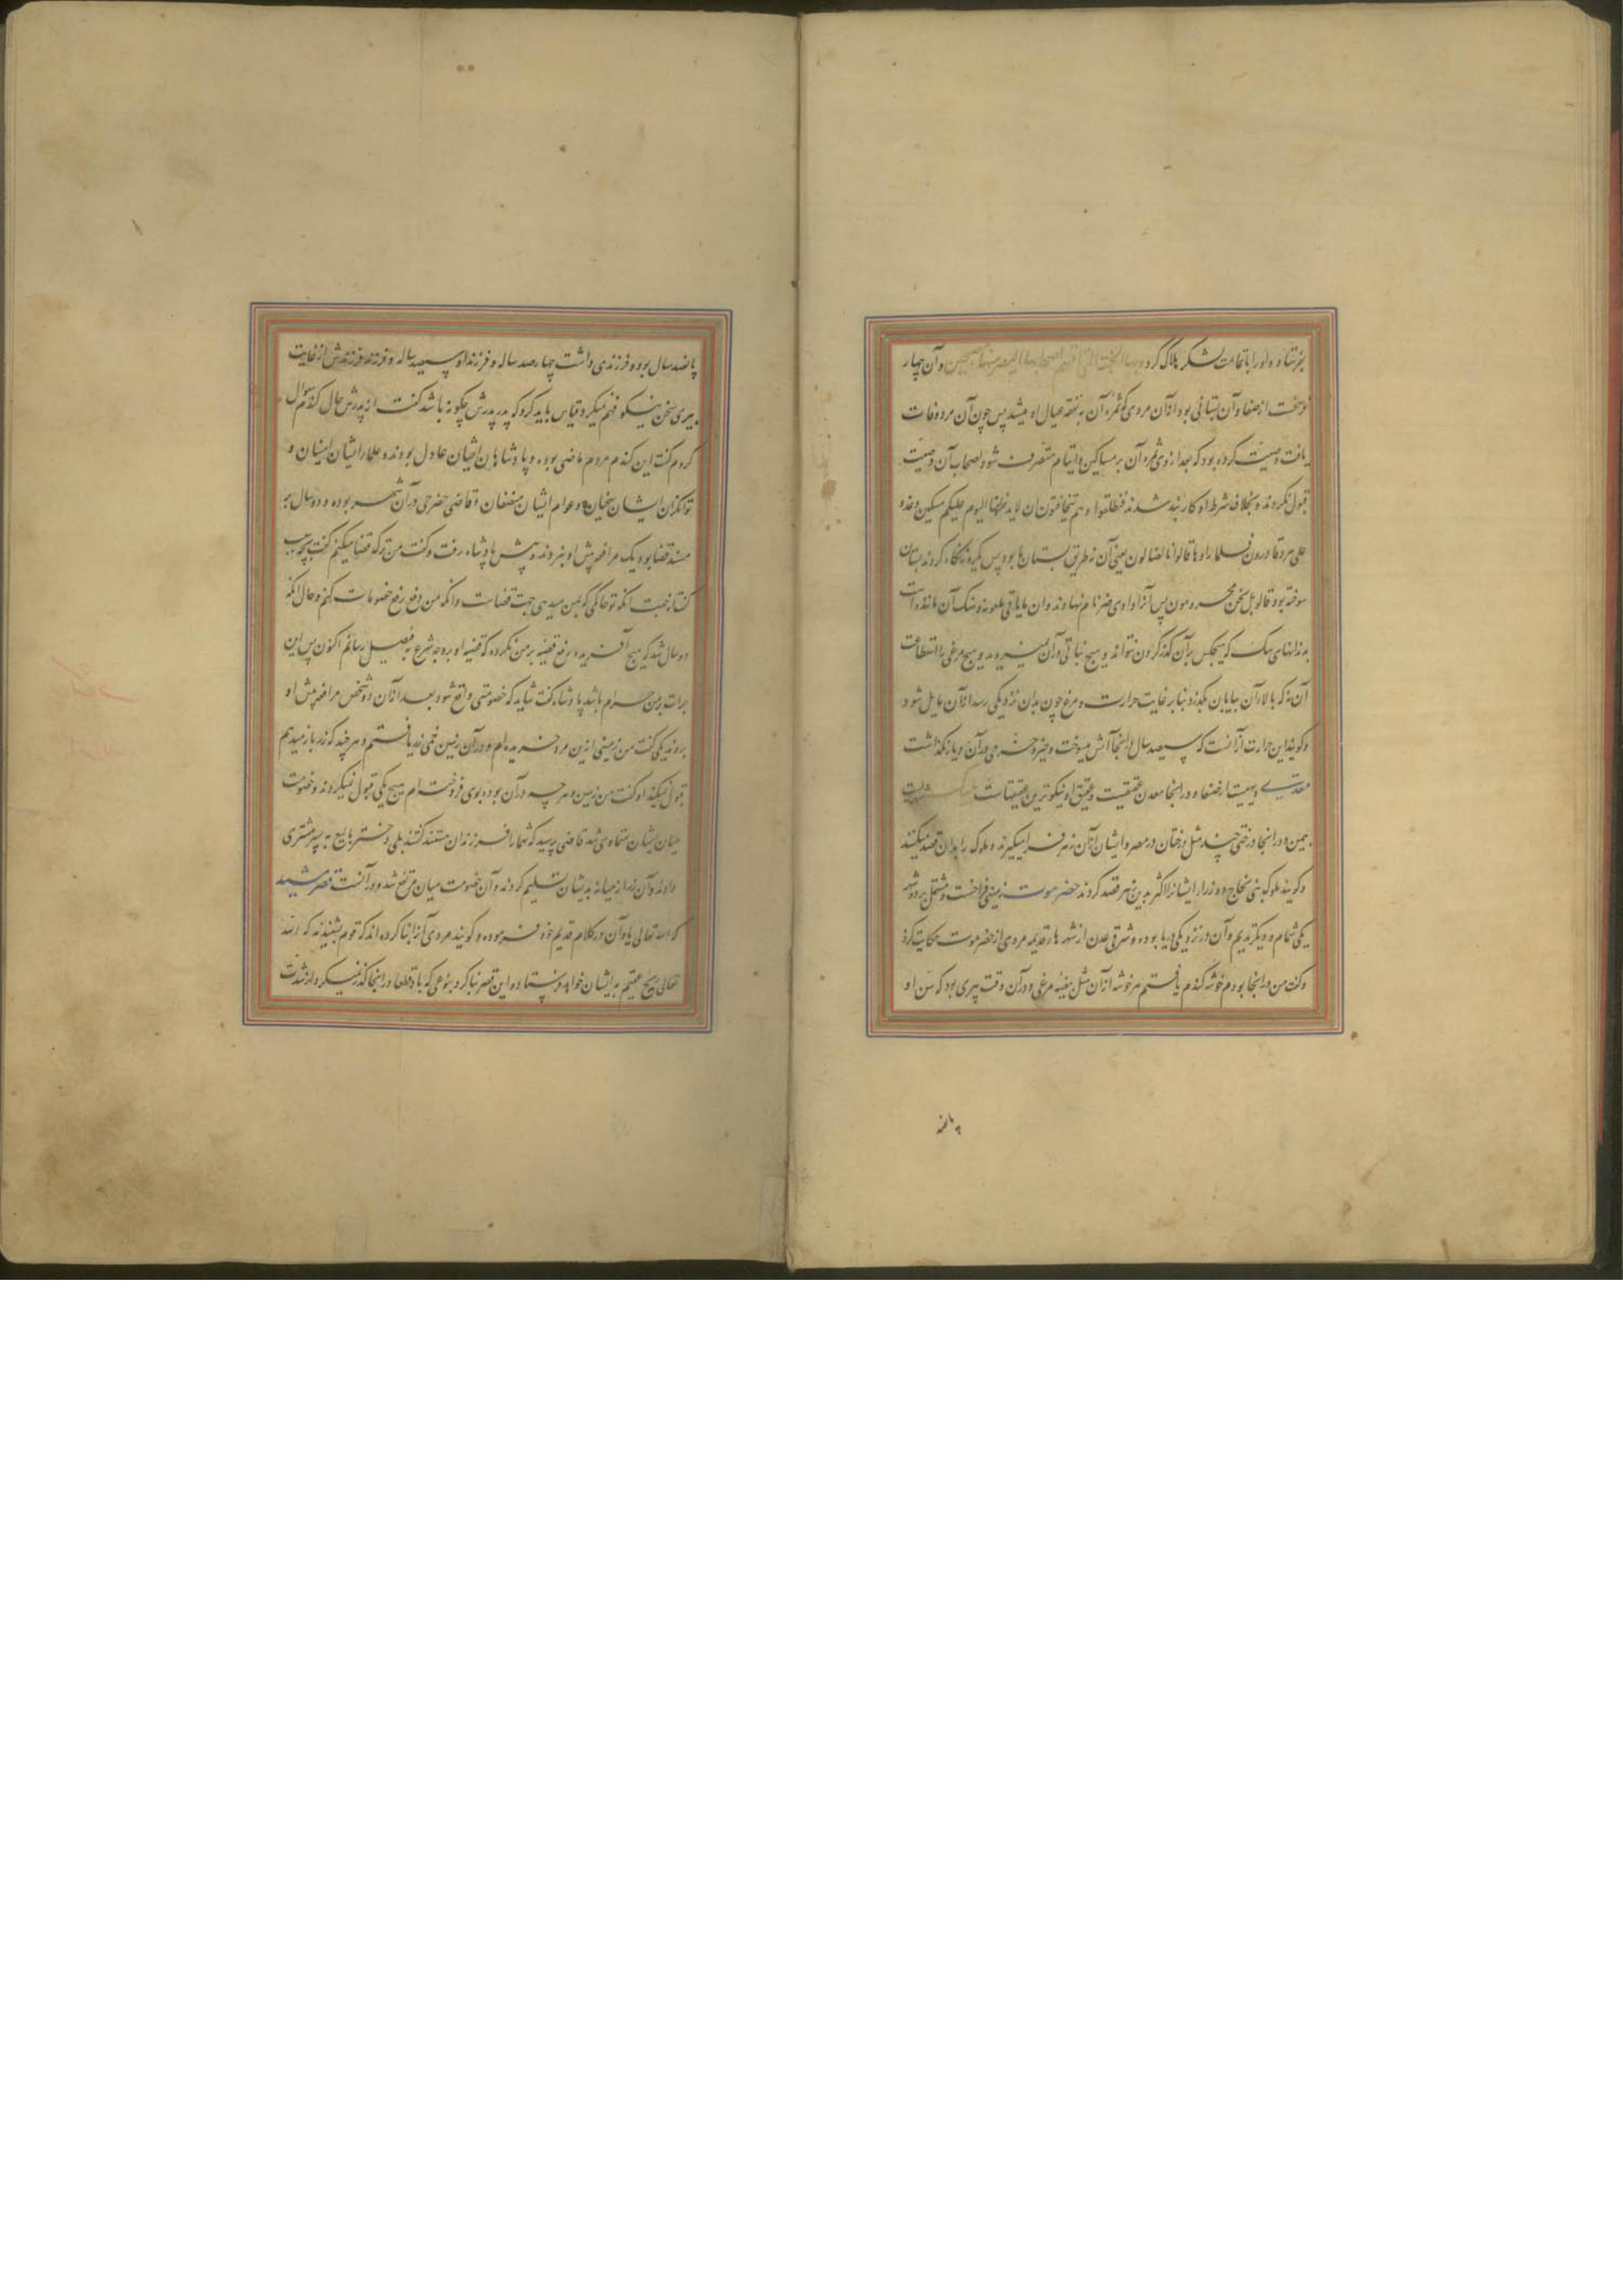 بفرستاد و او را با تمامت لشکر هلاک کرد و آن چهار
فرسخست از صنعا و آن بستانی بود از آن مردی که ثمره آن به نفقه عیال او میشد پس چون آن مرد وفات
یافت وصیت کرده بود که بعد از وی ثمره آن بر مساکین و ایتام متصرف شود اصحاب آن وصیت
قبول نکردند و بخلاف شرط او کاربند شدند فانطلقوا و هم یتخافتون ان لا یدخلنها الیوم علیکم مسکین و غدو
علی حرد قادرین فلما راوها قالوا انا لضالون یعنی آن نه طریق بستان ما بود پس نگاه کردند بستان
سوخته بود قالو بل نحن محرومون پس آنرا وادی ضروان نام نهادند و سنک آن مانند است
به دندانهای سک که هیچکس بر آن گذر کردن نتواند و هیچ نباتی در آن نمیروید و هیچ مرغی را استطاعت
آن نه که بالا آن بیابان بگذرد بنابر غایت حرارت و مرغ چون بدان نزدیکی رسد از آن مایل شود
و گویند این حرارت از آنست که سیصد سال در اینجا آتش میسوخت
دیهیست از صنعا و در اینجا معدن عقیقست و عقیق او نیکوترین عقیقهاست
یمن و در اینجا درختی چند مثل درختان در مصر و ایشان از آن زهر فرا میگیرند و ملوک را بدان قصد میکنند
و گویند ملوک بنی نجاح و وزرا را ایشانرا اکثر بدین زهر قصد کردند حضرموت زمینی فراخست و مشتمل بر دو شهر
یکی شبام و دیگر تریم و آن در نزدیکی دریا بوده و شرقی عدن از شهرها قدیمه مردی از حضرموت حکایت کرد
و گفت من در اینجا بودم خوشه گندم یافتم هر خوشه از آن مثل بیضه مرغی و در آن وقت پیری بود که سن او
پانصد
پانصد سال بود و فرزندی داشت چهارصد ساله و فرزند او سیصد ساله و فرزند فرزندش از غایت
پیری سخن نیکو فهم نمیکرد قیاس باید کرد که پدر پدرش چگونه باشد گفت از پدرش حال گندم سؤال
کردم گفت این گندم مردم ماضی بوده و پادشاهان ایشان عادل بودند و علما ایشان امینان و
توانگران ایشان سخیان و عوام ایشان منصفان و قاضی حضرمی در آن شهر بوده و دو سال بر
مسند قضا بود یک مرافعه پیش او نبردند پیش پادشاه رفت و گفت من ترک قضا میکنم گفت بچه سبب
گفتا بجهت آنکه تو حاکمی که بمن میدهی جهت قضاست و آنکه من دفع رفع خصومات کنم و حال آنکه
دو سال شد که هیچ آفریده رفع قضیه بر من نکرده که قضیه او بر وجه شرع به فیصل رسانم اکنون پس این
برات بر من حرام باشد پادشاه گفت شاید که خصومتی واقع شود بعد از آن دو شخص مرافعه پیش او
بردند یکی گفت من زمینی ازین مرد خریده‌ام و در آن زمین خمی زر یافتم و هر چند که زر باز میدهم
قبول نمیکند او گفت من زمین و هر چه در آن بوده بوی فروخته‌ام هیچ یکی قبول نمیکردند و خصومت
میان ایشان متمادی شد قاضی پرسید که شما را فرزندان هستند گفتند بلی دختر بایع به پسر مشتری
دادند و آن زر در میانه بدیشان تسلیم کردند و آن خصومت میان مرتفع شد و در آنست قصر مشید
که الله تعالی یاد آن در کلام قدیم خود فرموده و گویند مردی آنرا بنا کرده اند که قوم بشنیدند که الله
تعالی ریح عقیم به ایشان خواهد فرستاد و این قصر بنا کرد بنوعی که باد قطعا در اینجا گذر نمیکرد از شدت